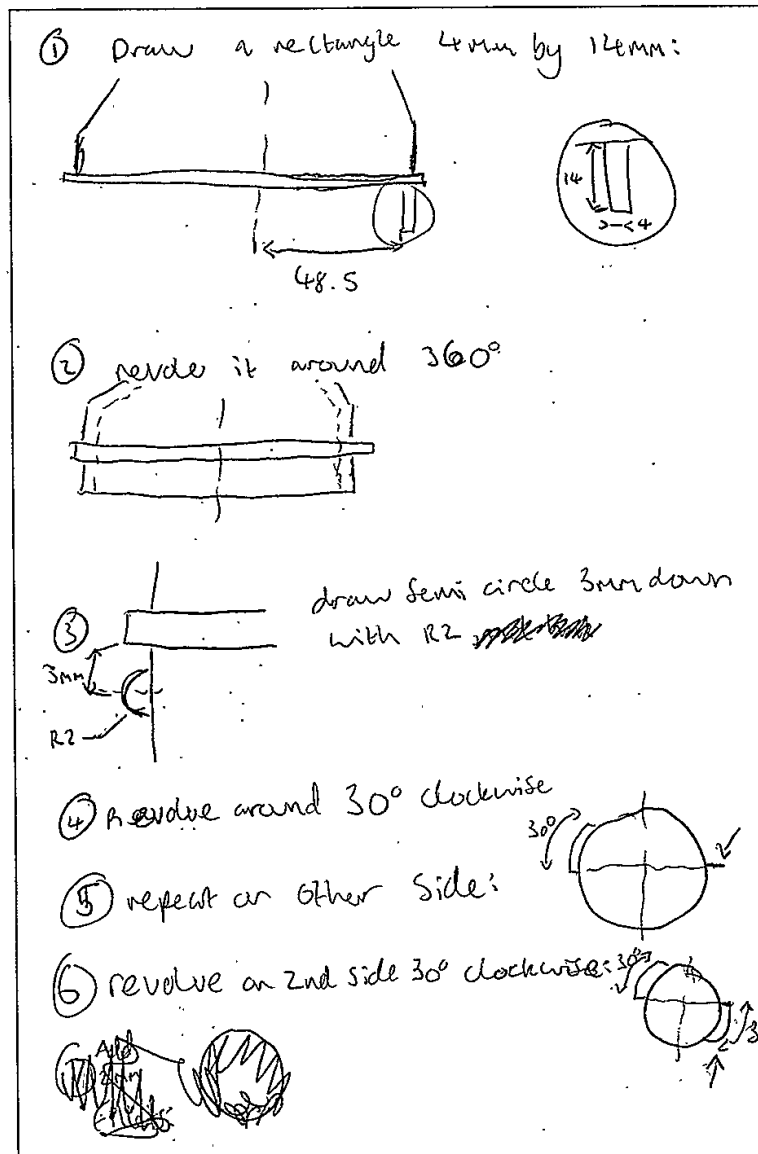 ① Draw a rectangle 4mm by 14mm:
14
4
48.5
② revole it around 360°
③ draw semi circle 3mm down
with R2
3mm
R2
④ Revolve around 30° clockwise
30°
⑤ repeat on other side:
⑥ revolve on 2nd side 30° clockwise:
30°